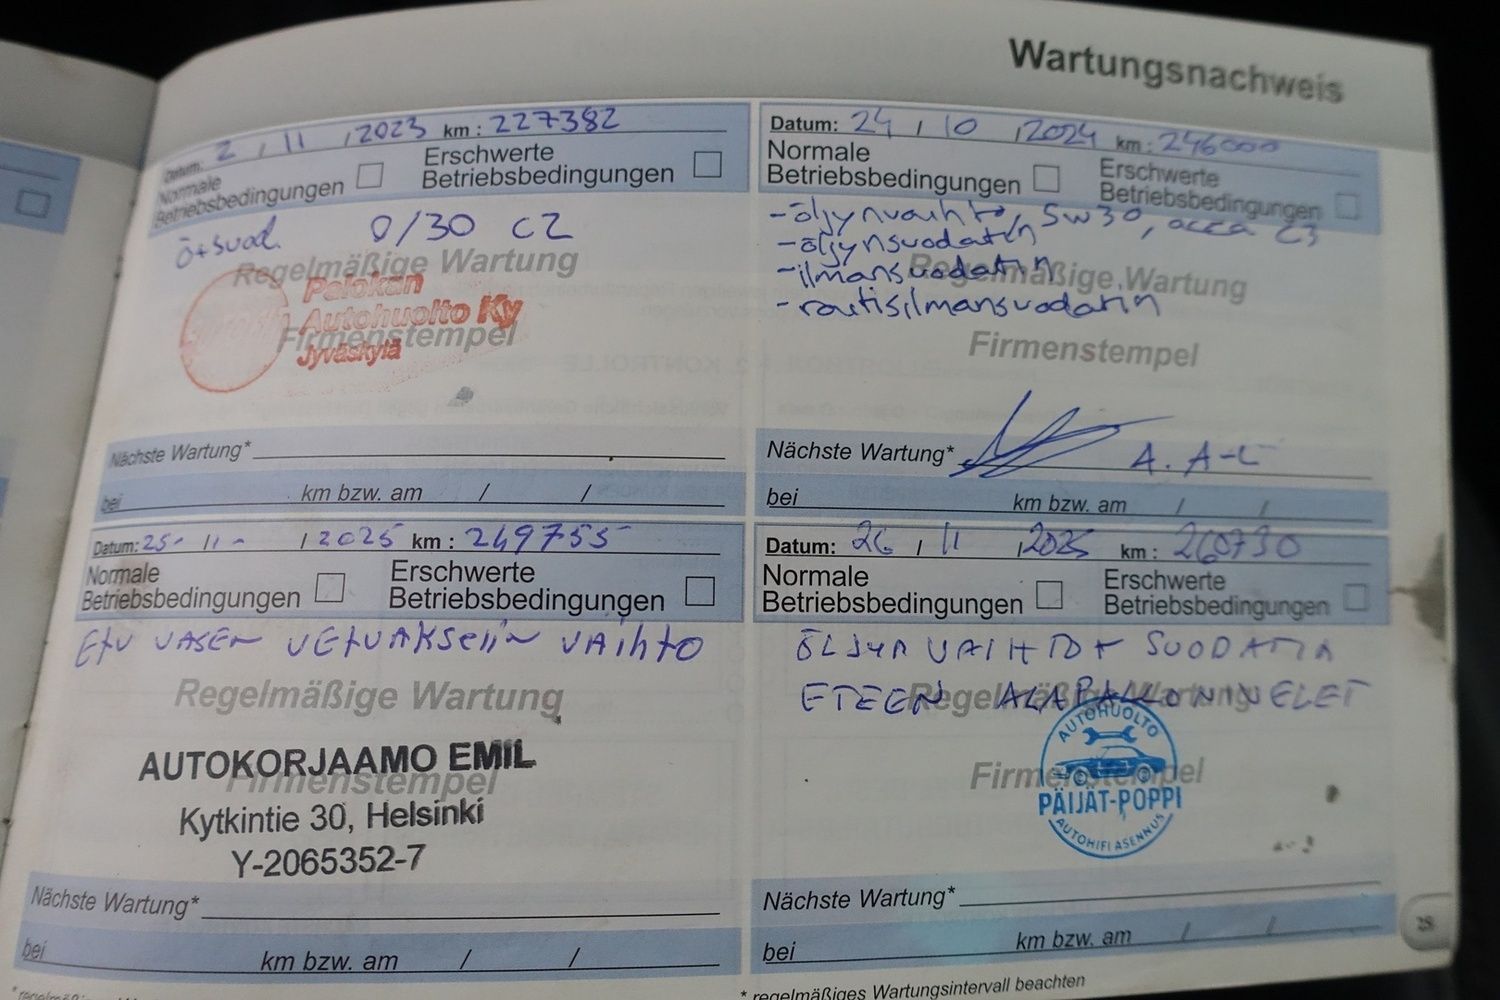 Wartungsnachweis
Datum: 2 / 11 / 2023 km : 227382
Normale Betriebsbedingungen
Erschwerte Betriebsbedingungen
ö+suod. 0/30 C2
Regelmäßige Wartung
Firmenstempel
Palokan
Autohuolto Ky
Jyväskylä
Nächste Wartung*
bei km bzw. am / /
Datum: 24 / 10 / 2024 km : 246000
Normale Betriebsbedingungen
Erschwerte Betriebsbedingungen
-öljynvaihto, 5w30, acea C3
-öljynsuodatin
-ilmansuodatin
-raitisilmansuodatin
Regelmäßige Wartung
Firmenstempel
Nächste Wartung* A. A-L
bei km bzw. am / /
Datum: 25- 11- / 2025 km : 249755
Normale Betriebsbedingungen
Erschwerte Betriebsbedingungen
Etu VASEN VETUAKSELIN VAIHTO
Regelmäßige Wartung
Firmenstempel
AUTOKORJAAMO EMIL
Kytkintie 30, Helsinki
Y-2065352-7
Nächste Wartung*
bei km bzw. am / /
Datum: 26 / 11 / 2025 km : 260730
Normale Betriebsbedingungen
Erschwerte Betriebsbedingungen
ÖLJYN VAIHTO + SUODATIN
ETEEN ALAPALLONIVELET
Regelmäßige Wartung
Firmenstempel
AUTOHUOLTO
PÄIJÄT-POPPI
AUTOHIFI ASENNUS
Nächste Wartung*
bei km bzw. am / /
* regelmäßiges Wartungsintervall beachten